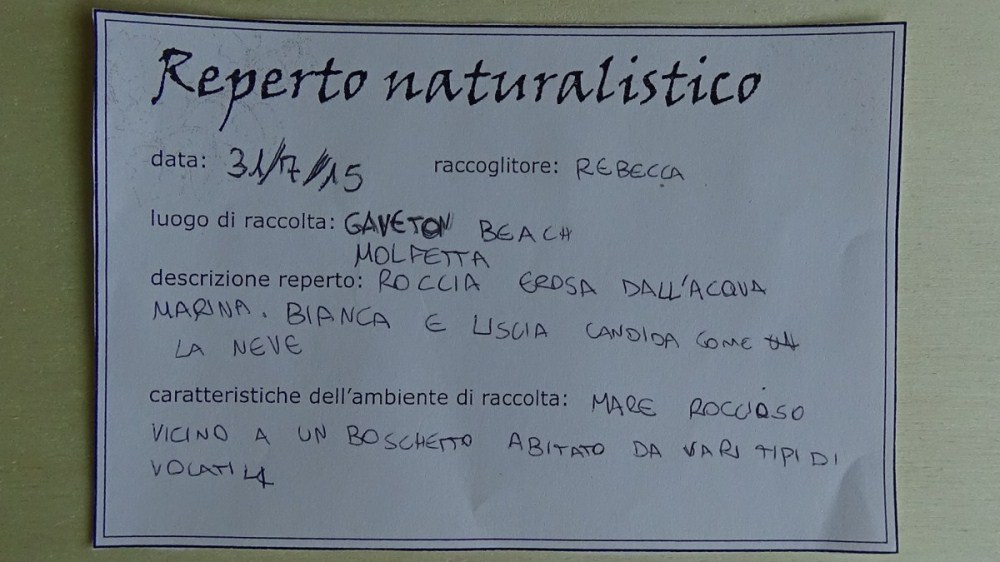 Reperto naturalistico
data: 31/7/15 raccoglitore: REBECCA
luogo di raccolta: GAVETON BEACH
MOLFETTA
descrizione reperto: ROCCIA EROSA DALL'ACQUA
MARINA. BIANCA E LISCIA CANDIDA COME
LA NEVE
caratteristiche dell'ambiente di raccolta: MARE ROCCIOSO
VICINO A UN BOSCHETTO ABITATO DA VARI TIPI DI
VOLATILI